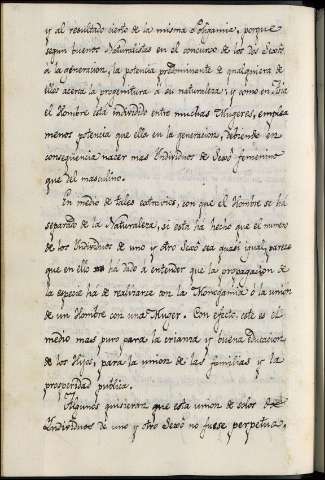 y al resultado cierto de la misma Poligamia, porque
segun buenos Naturalistas en el concurso de los dos Sexôs
â la generacion, la potencia predominente de qualquiera de
ellos acerca la progenitura â su naturaleza; y como en Asia
el Hombre esta individido entre muchas Mugeres, emplea
menos potencia que ella en la generacion, debiendo en
conseqüencia nacer mas Individuos de Sexô femenino
que del masculino.
En medio de tales extravios, con que el Hombre se há
separado de la Naturaleza, si esta há hecho que el numero
de los Individuos de uno y otro Sexô sea quasi igual, parece
que en ello há dado â entender que la propagacion de
la especie ha de realizarse con la Monogamia ô la union
de un Hombre con una Muger. Con efecto, este es el
medio mas puro para la crianza y buena educacion
de los Hijos, para la union de las familias y la
prosperidad publica.
Algunos quisieron que esta union de solos dos
Individuos de uno y otro Sexô no fuese perpetua,